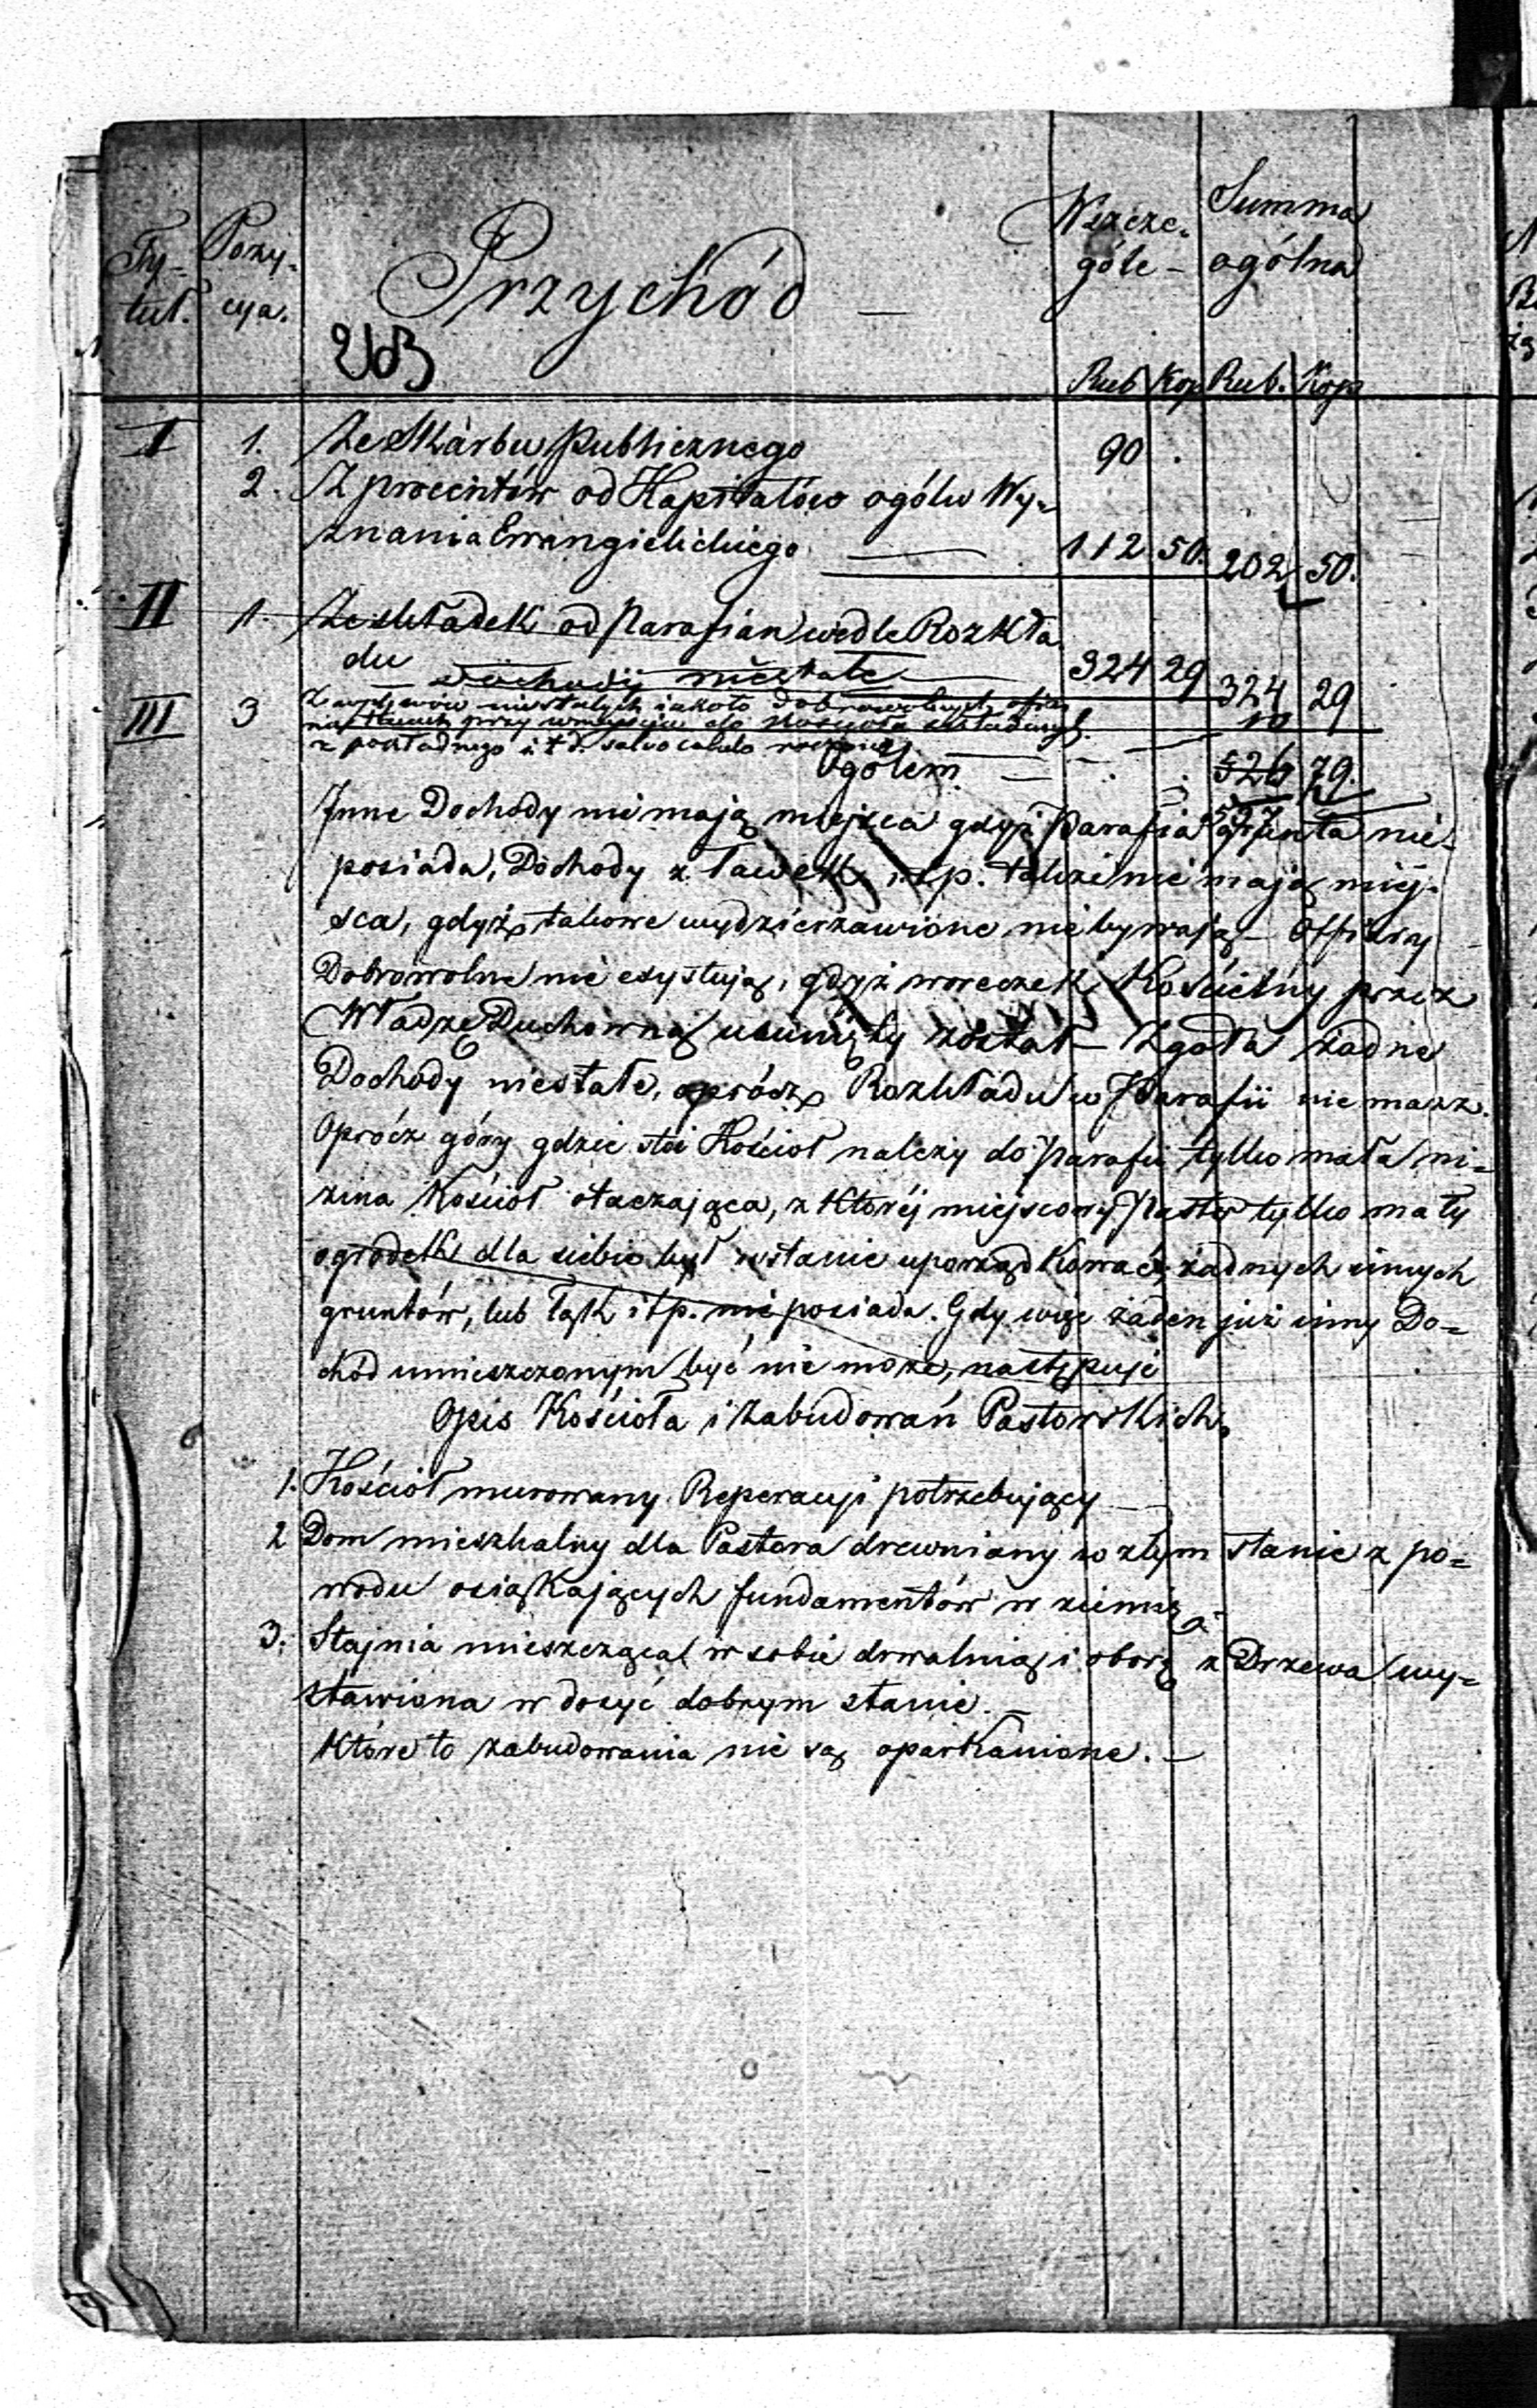 Ty-
tuł.
Pozy-
cya.
Przychód —
Wszcze-
góle -
Summa
ogólna
Rub Kop Rub. Kop
I 1. Ze Skarbu Publicznego 90 .
2. Z procentów od Kapitałów ogółu Wy-
znania Ewangielickiego — 112 50. 202 50.
II 1. Ze składek od Parafian wedle Rozkła
du 324 29 324 29
dochody niestałe
III 3 Z wpływów niestałych jakoto dobrowolnych ofiar
przy wnijściu do Kościoła składanych 10
z pokładnego i t d. salvo calculo rocznie
Ogółem — . . 526 79.
537
Inne Dochody nie mają miejsca gdyż Parafia grunta nie-
posiada, Dochody z ławek itp. także nie mają miej-
sca, gdyż takowe wydzierzawione nie bywają — Offiary
Dobrowolne nie exystują, gdyż woreczek Kościelny przez
Władzę Duchowną usunięty został — Zgoła żadne
Dochody niestałe, oprócz Rozkładu w Parafii nie masz.
Oprócz góry gdzie stoi Kościoł należy do Parafii tylko mała ni-
zina Kościoł otaczająca, z której miejscowy Pastor tylko mały
ogrodek dla siebie był wstanie uporządkować, żadnych innych
gruntów, lub łąk itp. nie posiada. Gdy więc żaden już inny Do-
chód umieszczonym być nie może, następuje
Opis Kościoła i Zabudowań Pastorskich.
1. Kościoł murowany Reperacyi potrzebujący —
2 Dom mieszkalny dla Pastora drewniany w złym stanie z po-
wodu osiąkających fundamentów w ziemię
3. Stajnia mieszcząca w sobie drwalnią i oborę z Drzewa wy-
stawiona w dosyć dobrym stanie. —
Które to zabudowania nie są oparkanione. —